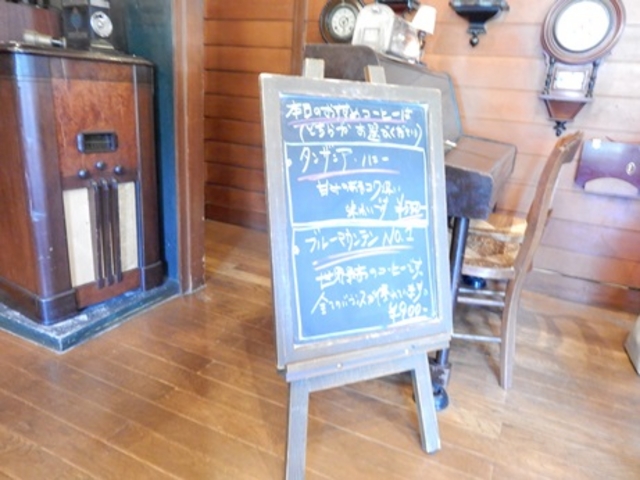 本日のおすすめコーヒーは
(どちらか お選びください)
タンザニア
甘みのあるコク深い
味わいです
ブルーマウンテン NO.1
世界最高のコーヒーで
全てのバランスが優れています
¥900-